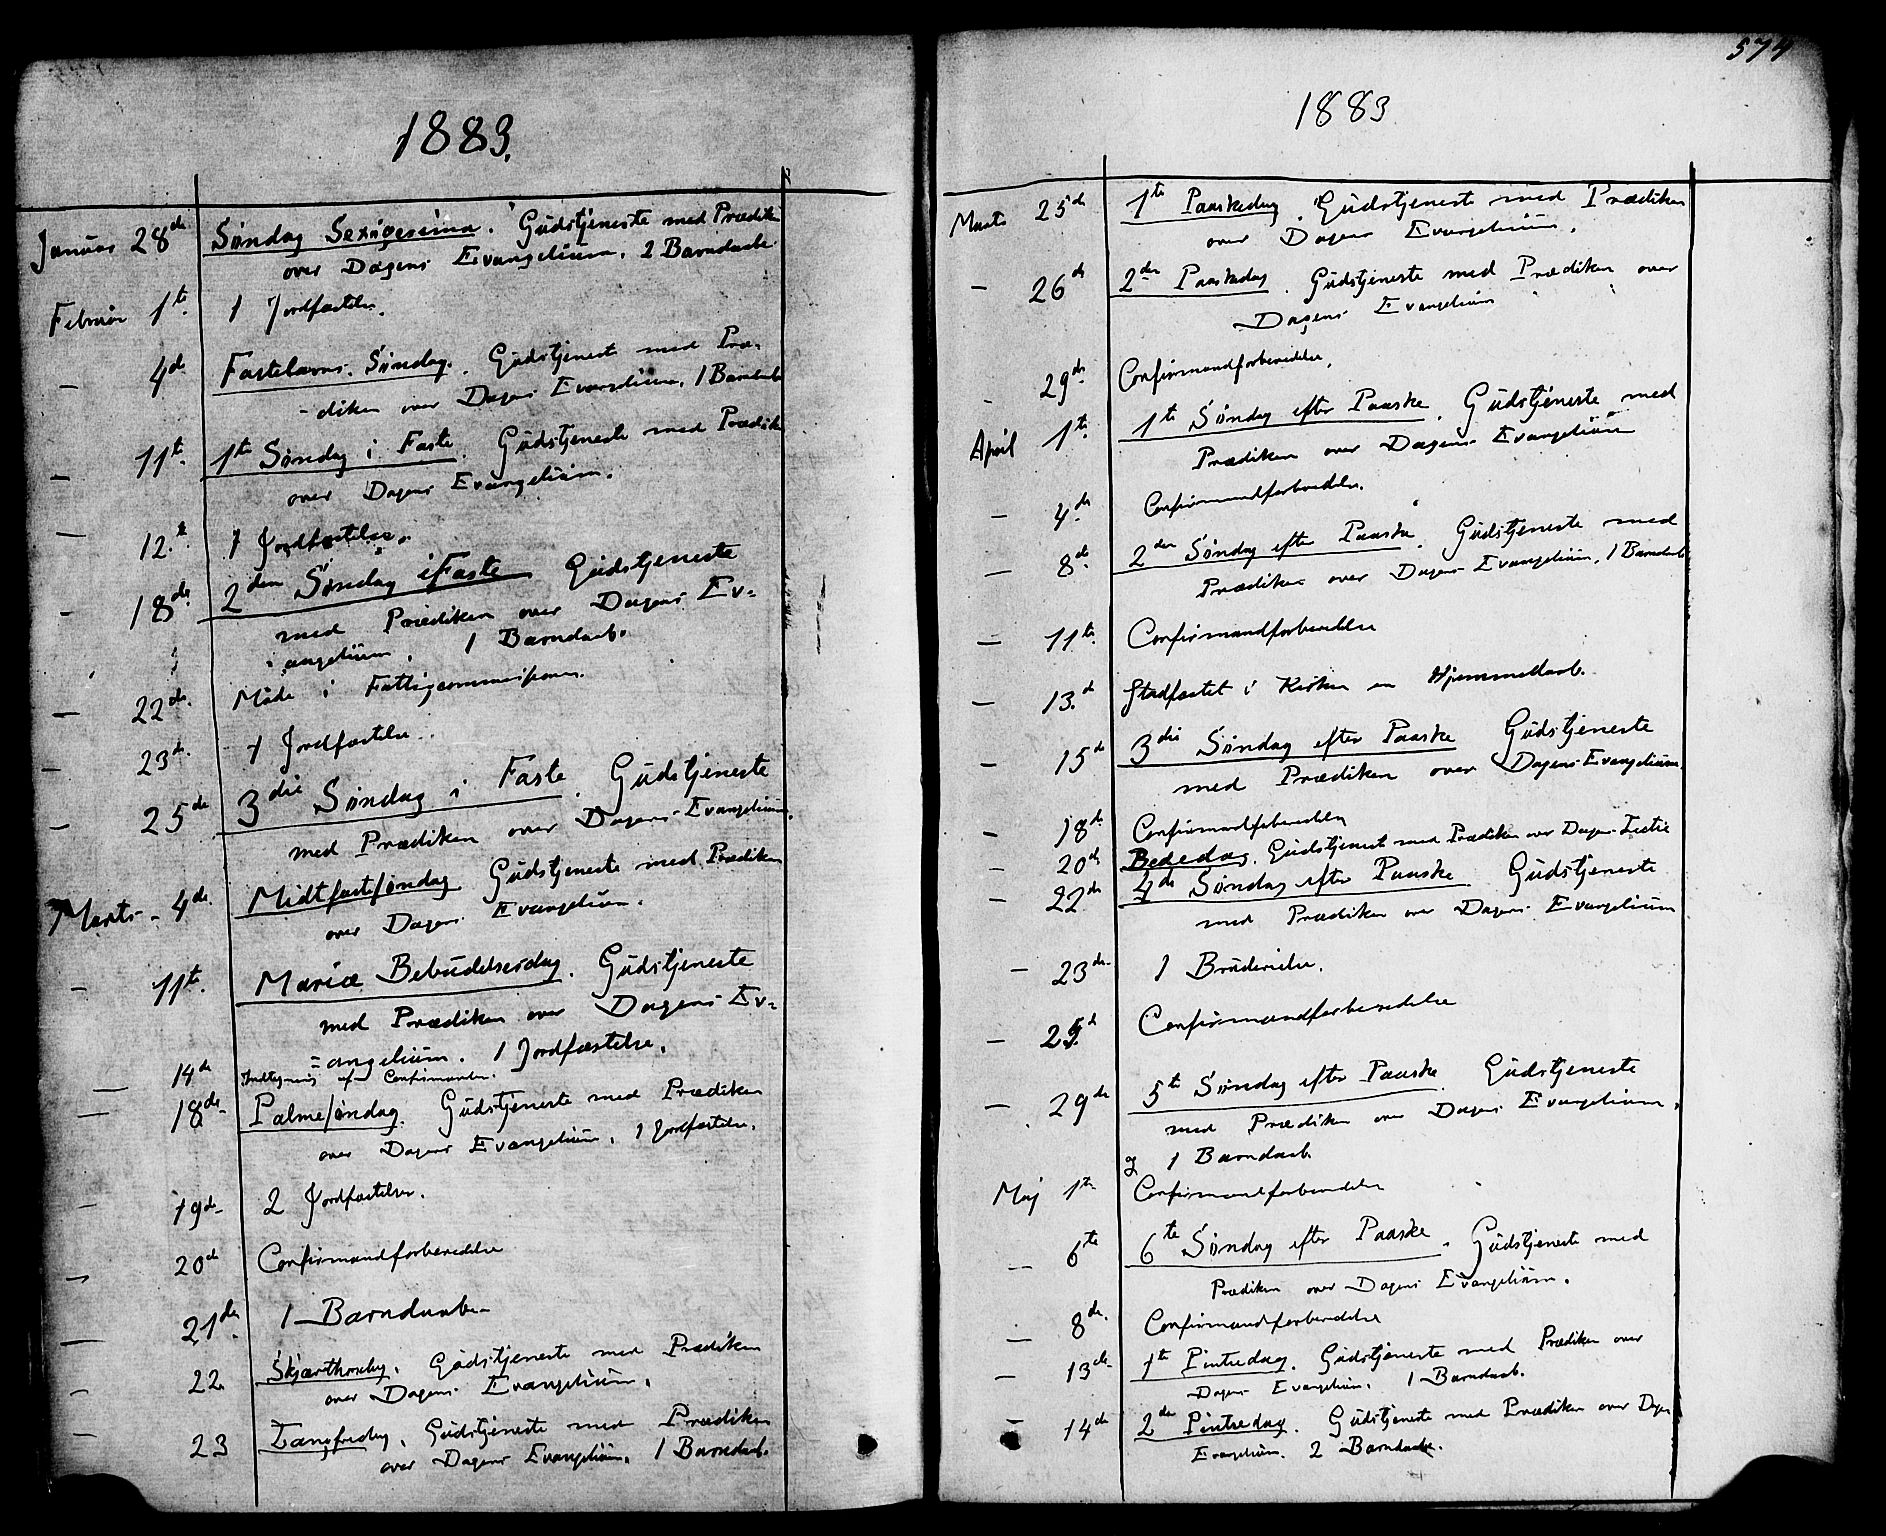 1883.
Januar 28de Søndag Sexagesima. Gudstjeneste med Prædik
over Dagens Evangelium. 2 Barndaabe
Februar 1te. 1 Jordfæstelse.
— 4de Fastelavns-Søndag. Gudstjeneste med Præ-
-diken over Dagens Evangelium. 1 Barndaab
— 11te. 1te Søndag i Faste. Gudstjeneste med Prædik
over Dagens Evangelium.
— 12.te 1 Jordfæstelse.
— 18de. 2den Søndag i Faste Gudstjeneste
med Prædiken over Dagens Ev-
angelium. 1 Barndaab.
— 22de. Møde i Fattigcommissionen.
— 23de. 1 Jordfæstelse.
— 25de 3die Søndag i Faste. Gudstjeneste
med Prædiken over Dagens Evangelium.
Marts - 4de. Midtfastesøndag Gudstjeneste med Prædiken
over Dagens Evangelium.
— 11te. Mariæ Bebudelsesdag. Gudstjeneste
med Prædiken over Dagens Ev-
-angelium. 1 Jordfæstelse.
— 14de Indtegning af Confirmanter.
— 18de- Palmesøndag. Gudstjeneste med Prædiken
over Dagens Evangelium. 1 Jordfæstelse.
— 19de- 2 Jordfæstelser.
— 20de Confirmandforberedelse
— 21de. 1 Barndaab
— 22. Skjærthorsdag. Gudstjeneste med Prædiken
over Dagens Evangelium.
— 23 Langfredag. Gudstjeneste med Prædiken
over Dagens Evangelium. 1 Barndaab.
574
1883
Marts 25de 1te Paaskedag. Gudstjeneste med Prædiken
over Dagens Evangelium.
— 26de 2den Paaskedag. Gudstjeneste med Prædiken over
Dagens Evangelium
- 29de. Confirmandforberedelse.
April 1te. 1te Søndag efter Paaske. Gudstjeneste med
Prædiken over Dagens Evangelium
— 4de. Confirmandforberedelse.
— 8de. 2den Søndag efter Paaske. Gudstjeneste med
Prædiken over Dagens Evangelium, 1 Barndaab
— 11te. Confirmandforberedelse
— 13.de Stadfæstet i Kirken en Hjemmedaab.
— 15de 3die Søndag efter Paaske Gudstjeneste
med Prædiken over Dagens Evangelium.
— 18de. Confirmandforberedelse
— 20de Bededag. Gudstjenest med Prædiken over Dagens Lectie
— 22de 4de Søndag efter Paaske Gudstjeneste
med Prædiken over Dagens Evangelium
— 23de- 1 Brudevielse.
— 25de Confirmandforberedelse
— 29de 5te Søndag efter Paaske. Gudstjeneste
med Prædiken over Dagens Evangelium,
1 Barndaab.
Maj 1te Confirmandforberedelse
— 6te 6te Søndag efter Paaske. Gudstjeneste med
Prædiken over Dagens Evangelium.
— 8de. Confirmandforberedelse
— 13de- 1te Pintsedag. Gudstjeneste med Prædiken over
Dagens Evangelium. 1 Barndaab.
— 14de 2den Pintsedag. Gudstjeneste med Prædiken over Dagens
Evangelium. 2 Barndaab.